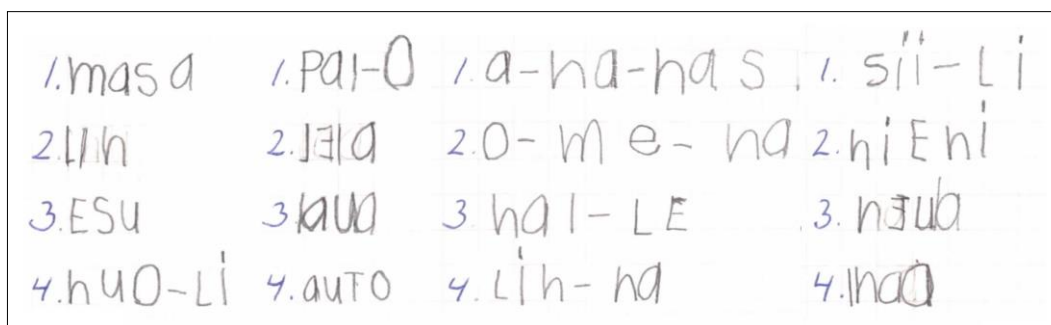 1. masa
2. LIn
3. ESU
4. nuO-Li
1. PAI-O
2.
3.
4. auTO
1. a-na-nas
2. O-me-na
3. nal-LE
4. Lin-na
1. sii-Li
2. niEni
3. nEua
4.